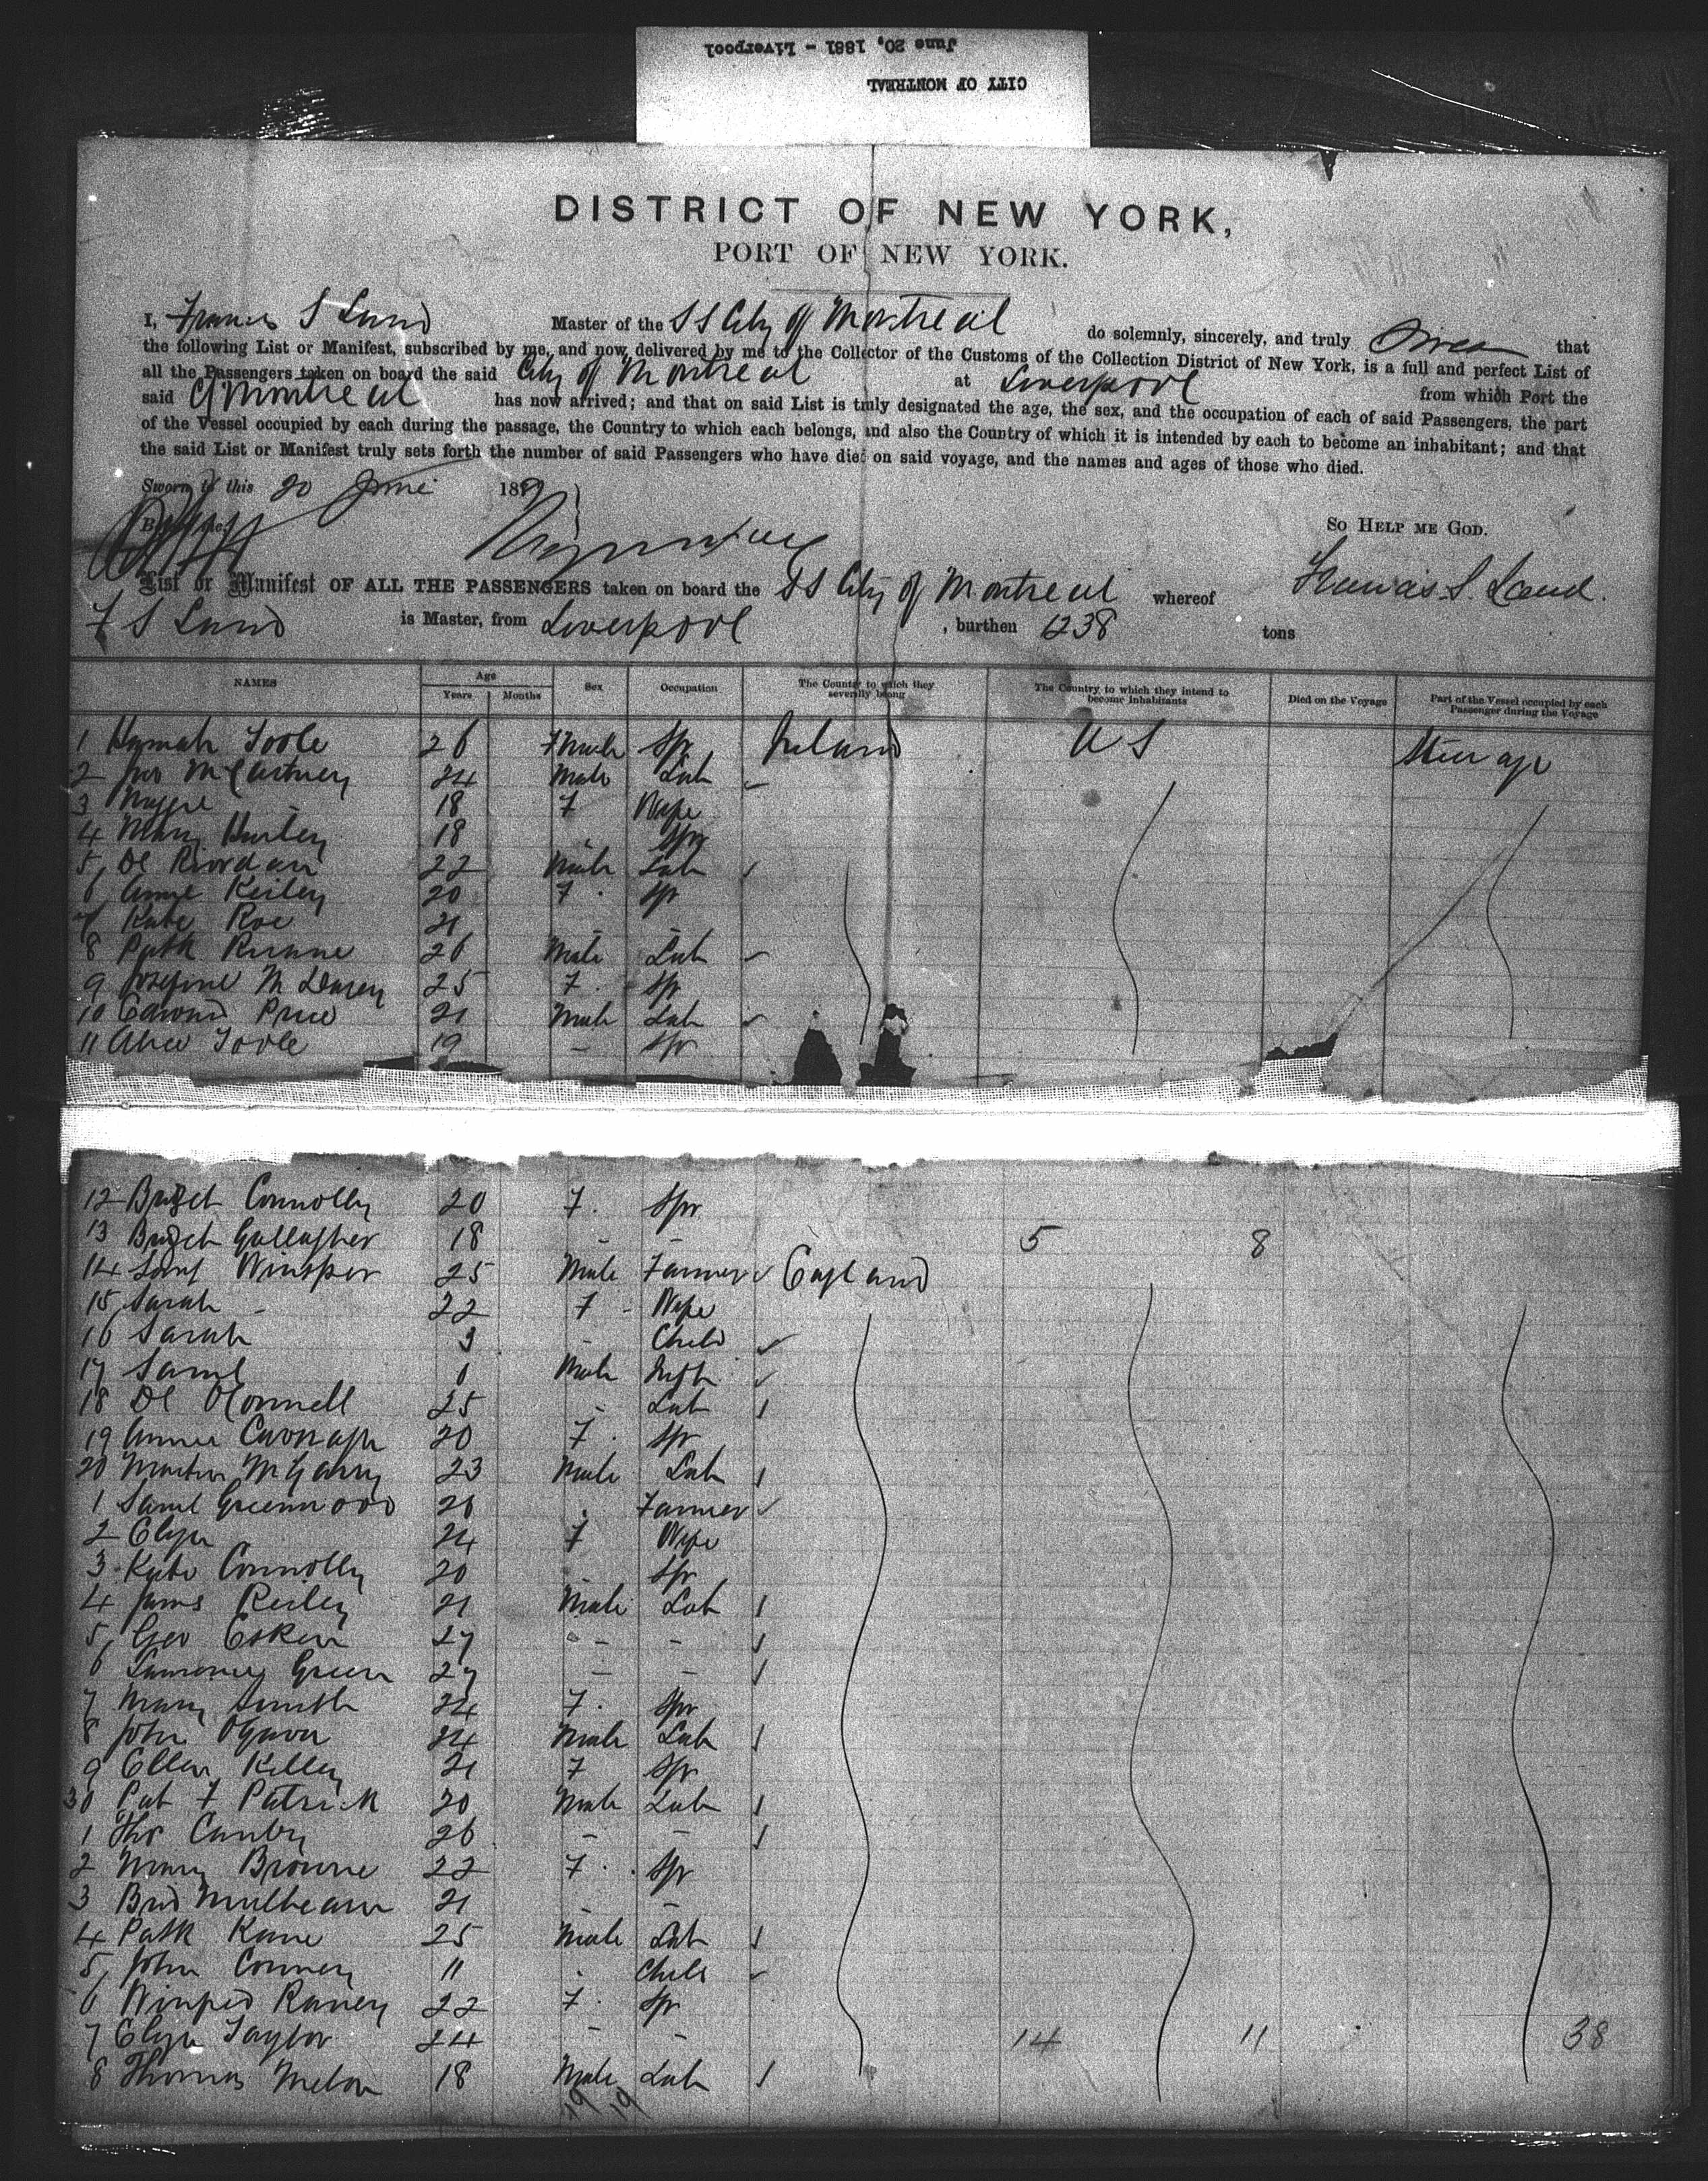 June 20, 1881 - Liverpool
CITY OF MONTREAL
DISTRICT OF NEW YORK,
PORT OF NEW YORK.
I, Francis S Land Master of the SS City of Montreal do solemnly, sincerely, and truly Swear that
the following List or Manifest, subscribed by me, and now delivered by me to the Collector of the Customs of the Collection District of New York, is a full and perfect List of
all the Passengers taken on board the said City of Montreal at Liverpool from which Port the
said C Montreal has now arrived; and that on said List is truly designated the age, the sex, and the occupation of each of said Passengers, the part
of the Vessel occupied by each during the passage, the Country to which each belongs, and also the Country of which it is intended by each to become an inhabitant; and that
the said List or Manifest truly sets forth the number of said Passengers who have died on said voyage, and the names and ages of those who died.
Sworn to this 20 June 188
Before me, So HELP ME GOD.
List or Manifest OF ALL THE PASSENGERS taken on board the SS City of Montreal whereof Francis S. Land.
F S Land is Master, from Liverpool, burthen 1238 tons
NAMES Age Years Months Sex Occupation The Country to which they severally belong The Country to which they intend to become inhabitants Died on the Voyage Part of the Vessel occupied by each Passenger during the Voyage
1 Hannah Toole 26 Female Spr Ireland U S Steerage
2 Jno McCartney 24 Male Lab
3 Maggie 18 F Wife
4 Mary Hurley 18 - Spr
5 Dl Riordan 22 Male Lab
6 Annie Keiley 20 F. Spr
7 Kate Roe 21 - -
8 Patk Ruane 26 Male Lab
9 Josefine M 25 F. Spr
10 Edward Price 21 Male Lab
11 Alice Toole 19 - Spr
12 Bridget Connolly 20 F. Spr
13 Bridget Gallagher 18 - - 5 8
14 Saml Winsper 25 Male Farmer England
15 Sarah - 22 F - Wife
16 Sarah 3 - Child
17 Saml 0 Male Inft
18 Dl OConnell 25 - Lab
19 Annie Cavonagh 20 F. Spr
20 Martin McGarry 23 Male Lab
1 Saml Greenwood 26 . Farmer
2 Eliza 24 F Wife
3 Kate Connolly 20 - Spr
4 James Reiley 21 Male Lab
5 Geo 27 - -
6 Green 27 - -
7 Mary Smith 24 F. Spr
8 John 24 Male Lab
9 Ellen Killey 21 F Spr
30 Pat F Patrick 20 Male Lab
1 Tho 26 - -
2 Mary Browne 22 F. Spr
3 Brid Mulhearn 21 - -
4 Patk Kane 25 Male Lab
5 John 11 . Child
6 Winifred 22 F. Spr
7 Eliza Taylor 24 - - 14 11 38
8 Thomas 18 Male Lab
19 19